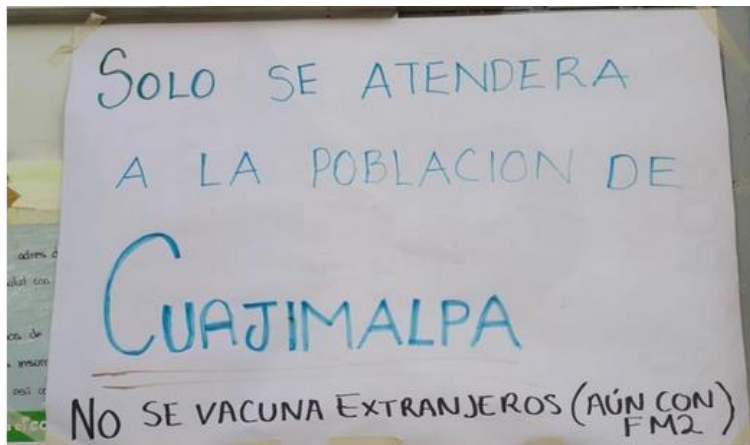 SOLO SE ATENDERA
A LA POBLACION DE
CUAJIMALPA
NO SE VACUNA EXTRANJEROS (AÚN CON
FM2)
adres d
con
ca de
así c